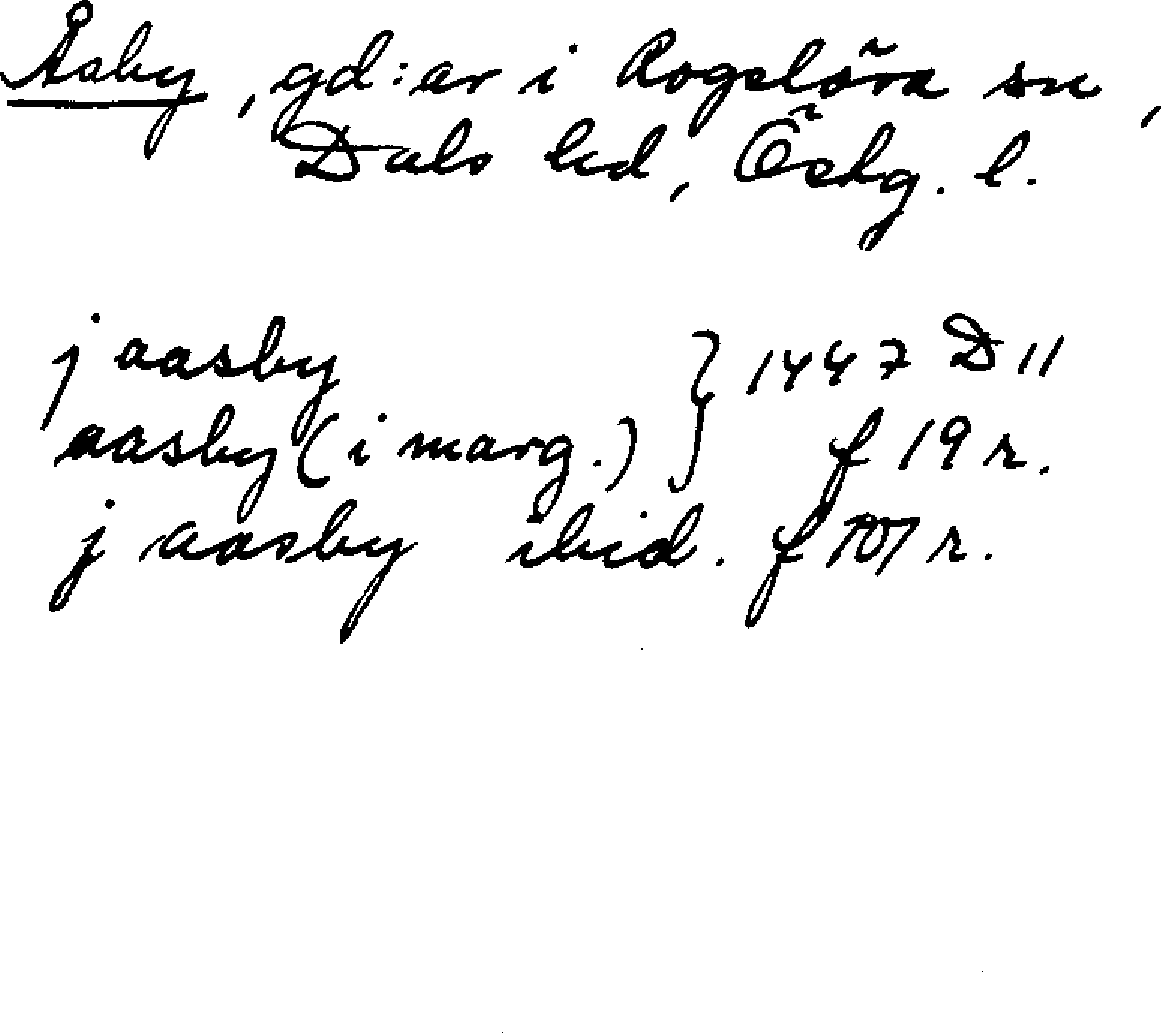 Åsby, gd:ar i Rogslösa sn,
Dals hd, Östg. l.
j aasby } 1447 D 11
aasby (i marg.) } f 19 r.
j aasby ibid. f 107 r.